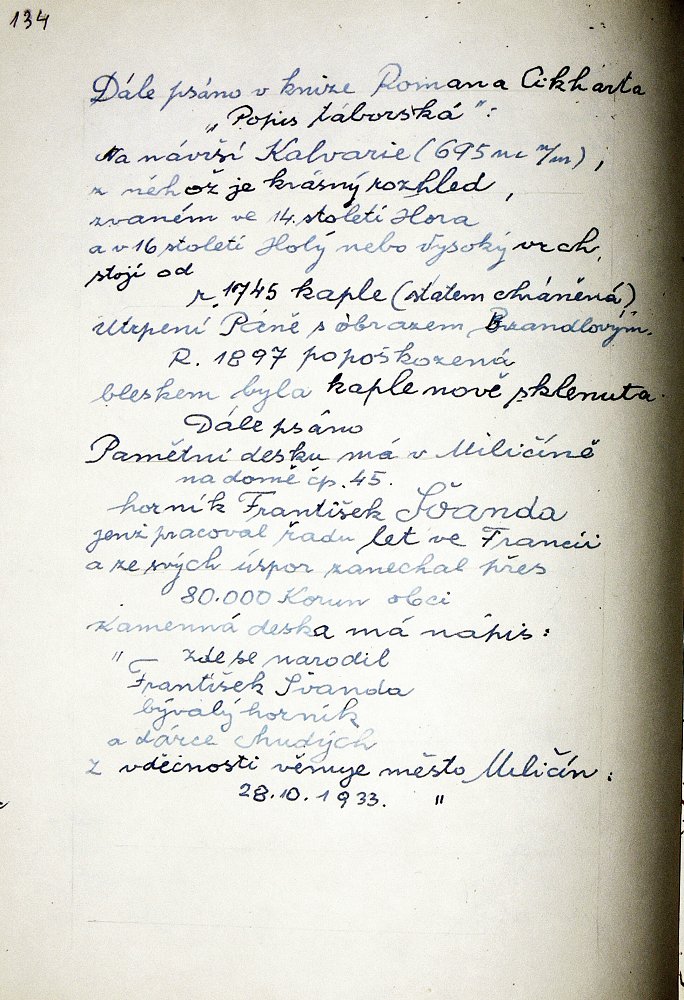 134
Dále psáno v knize Romana Cikharta
„Popis táborská":
Na návrší Kalvarie (695 m n/m),
z něhož je krásný rozhled,
zvaném ve 14. století Hora
a v 16 století Holý nebo Vysoký vrch,
stojí od
r. 1745 kaple (státem chráněná)
Utrpení Páně s obrazem Brandlovým.
R. 1897 popoškozená
bleskem byla kaple nově sklenuta.
Dále psáno
Pamětní desku má v Miličíně
na domě čp. 45.
horník František Švanda
jenž pracoval řadu let ve Francii
a ze svých úspor zanechal přes
80.000 Korun obci
Kamenná deska má nápis:
„ Zde se narodil
František Švanda
bývalý horník
a dárce chudých
z vděčnosti věnuje město Miličín:
28.10.1933. "